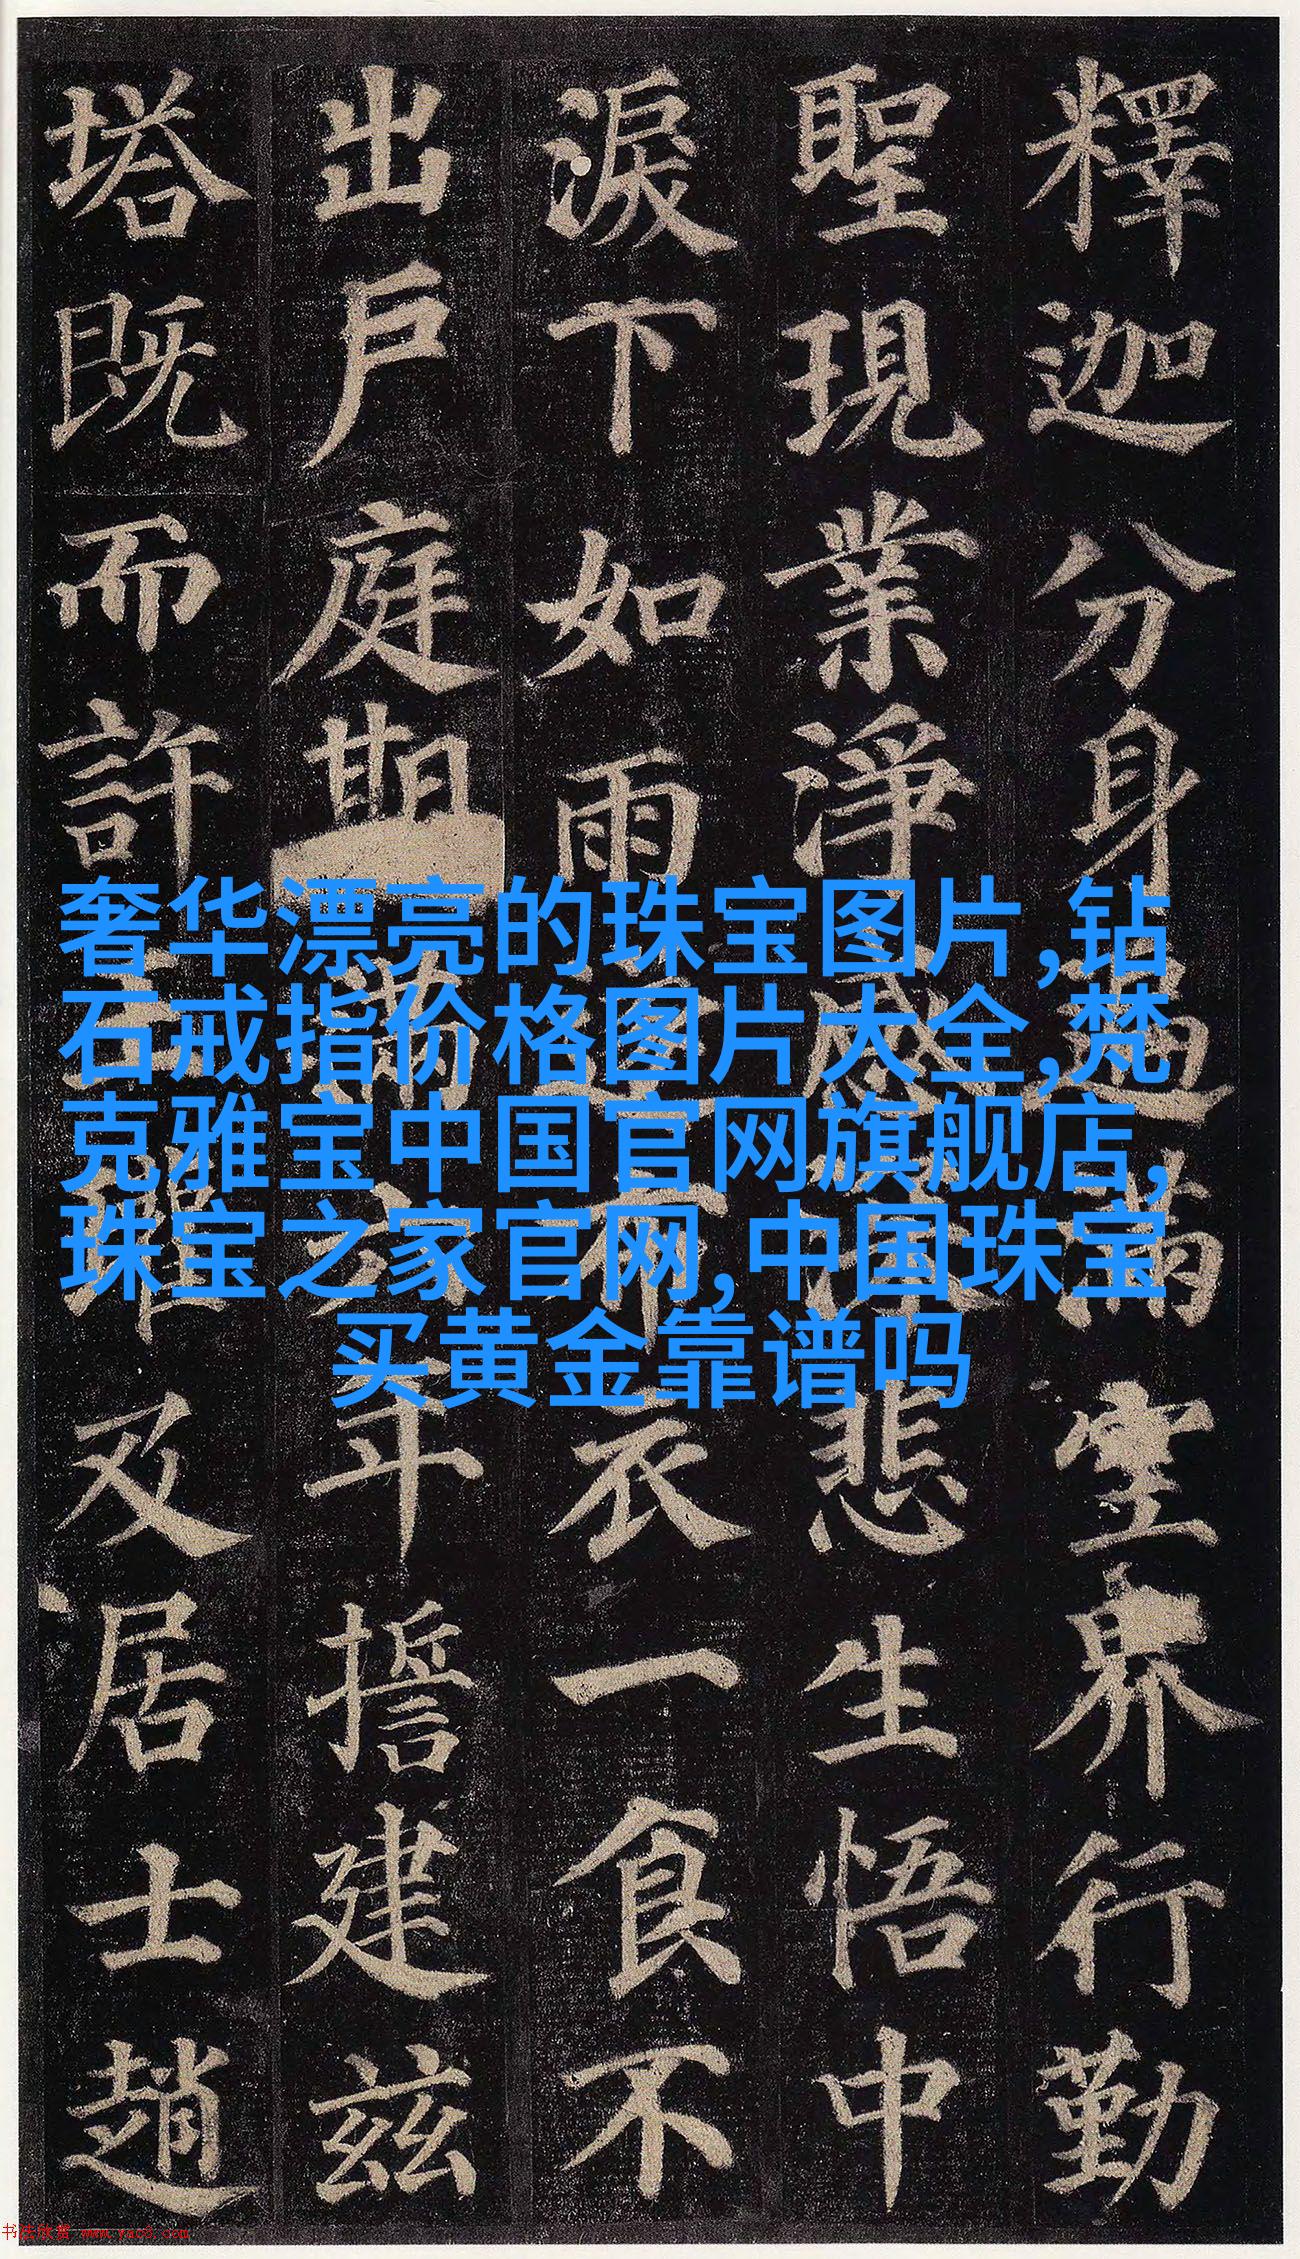 釋迦分身遍滿空界行勤
聖現業淨感悲生悟中
淚下如雨衣一食不
出戶庭期滿六年誓建茲
塔既而許及居士趙
奢华漂亮的珠宝图片,钻
石戒指价格图片大全,梵
克雅宝中国官网旗舰店,
珠宝之家官网,中国珠宝
买黄金靠谱吗
书法欣赏 www.yac8.com